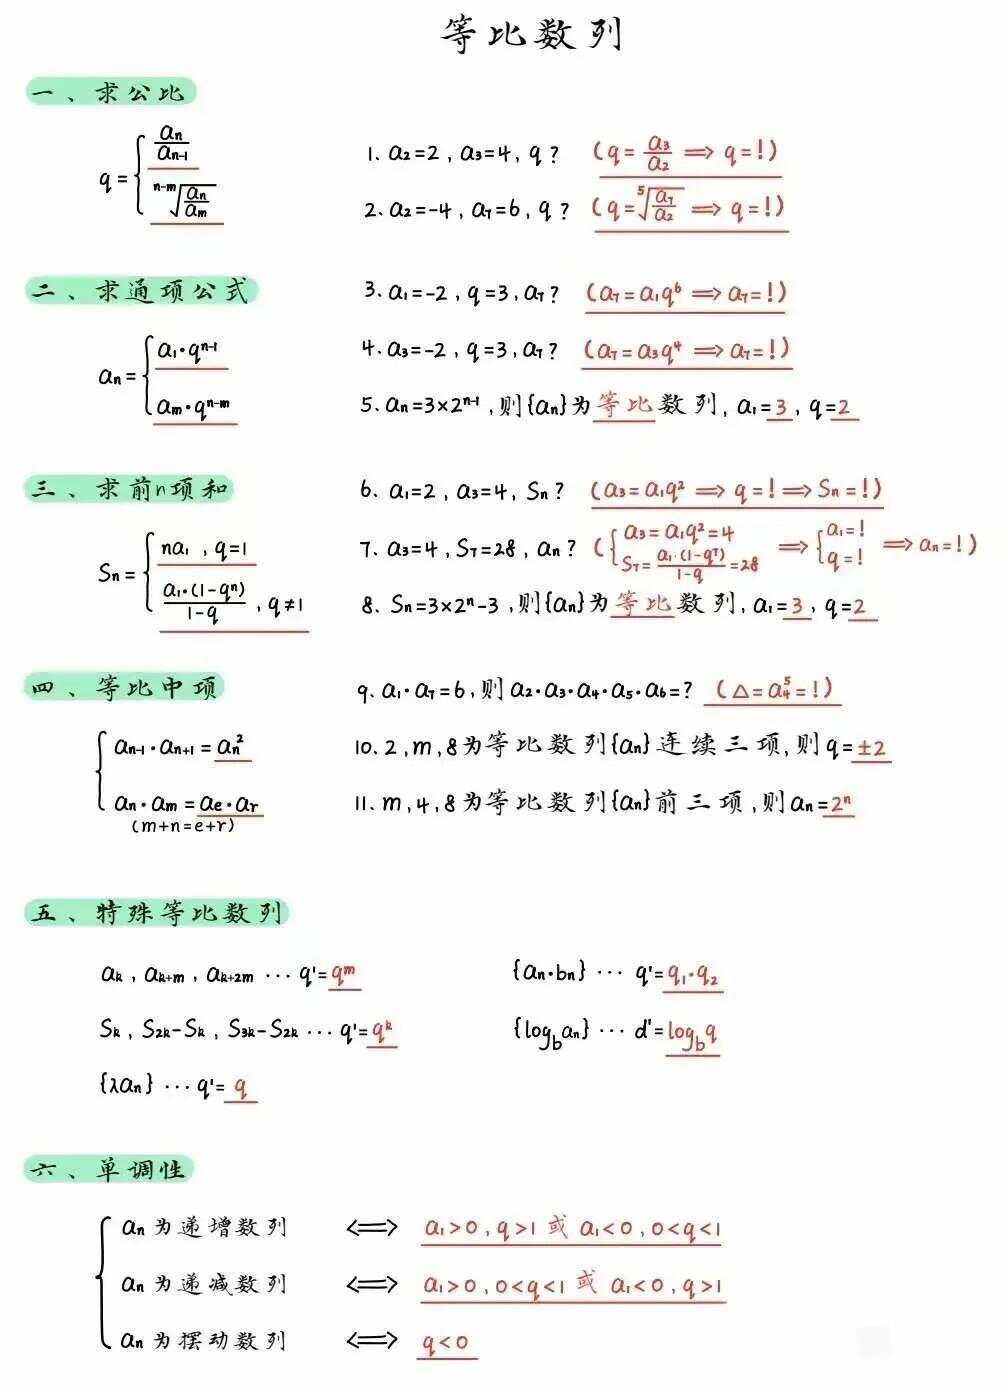 等比数列
一、求公比
q = { an/an-1
n-m√(an/am)
1. a2=2, a3=4, q? (q = a3/a2 ⟹ q=!)
2. a2=-4, a7=6, q? (q = 5√(a7/a2) ⟹ q=!)
二、求通项公式
an = { a1·q^n-1
am·q^n-m
3. a1=-2, q=3, a7? (a7=a1q^6 ⟹ a7=!)
4. a3=-2, q=3, a7? (a7=a3q^4 ⟹ a7=!)
5. an=3×2^n-1, 则{an}为等比数列, a1=3, q=2
三、求前n项和
Sn = { na1, q=1
a1·(1-q^n)/1-q, q≠1
6. a1=2, a3=4, Sn? (a3=a1q^2 ⟹ q=! ⟹ Sn=!)
7. a3=4, S7=28, an? ( { a3=a1q^2=4 S7=a1·(1-q^7)/1-q=28 ⟹ { a1=! q=! ⟹ an=!)
8. Sn=3×2^n-3, 则{an}为等比数列, a1=3, q=2
四、等比中项
{ an-1·an+1=an^2
an·am=ae·ar
(m+n=e+r)
9. a1·a7=6, 则a2·a3·a4·a5·a6=? (△=a4^5=!)
10. 2, m, 8为等比数列{an}连续三项, 则q=±2
11. m, 4, 8为等比数列{an}前三项, 则an=2^n
五、特殊等比数列
ak, ak+m, ak+2m ··· q'=q^m
{an·bn} ··· q'=q1·q2
Sk, S2k-Sk, S3k-S2k ··· q'=q^k
{log_b an} ··· d'=log_b q
{λan} ··· q'=q
六、单调性
{ an为递增数列 ⟺ a1>0, q>1 或 a1<0, 0<q<1
an为递减数列 ⟺ a1>0, 0<q<1 或 a1<0, q>1
an为摆动数列 ⟺ q<0